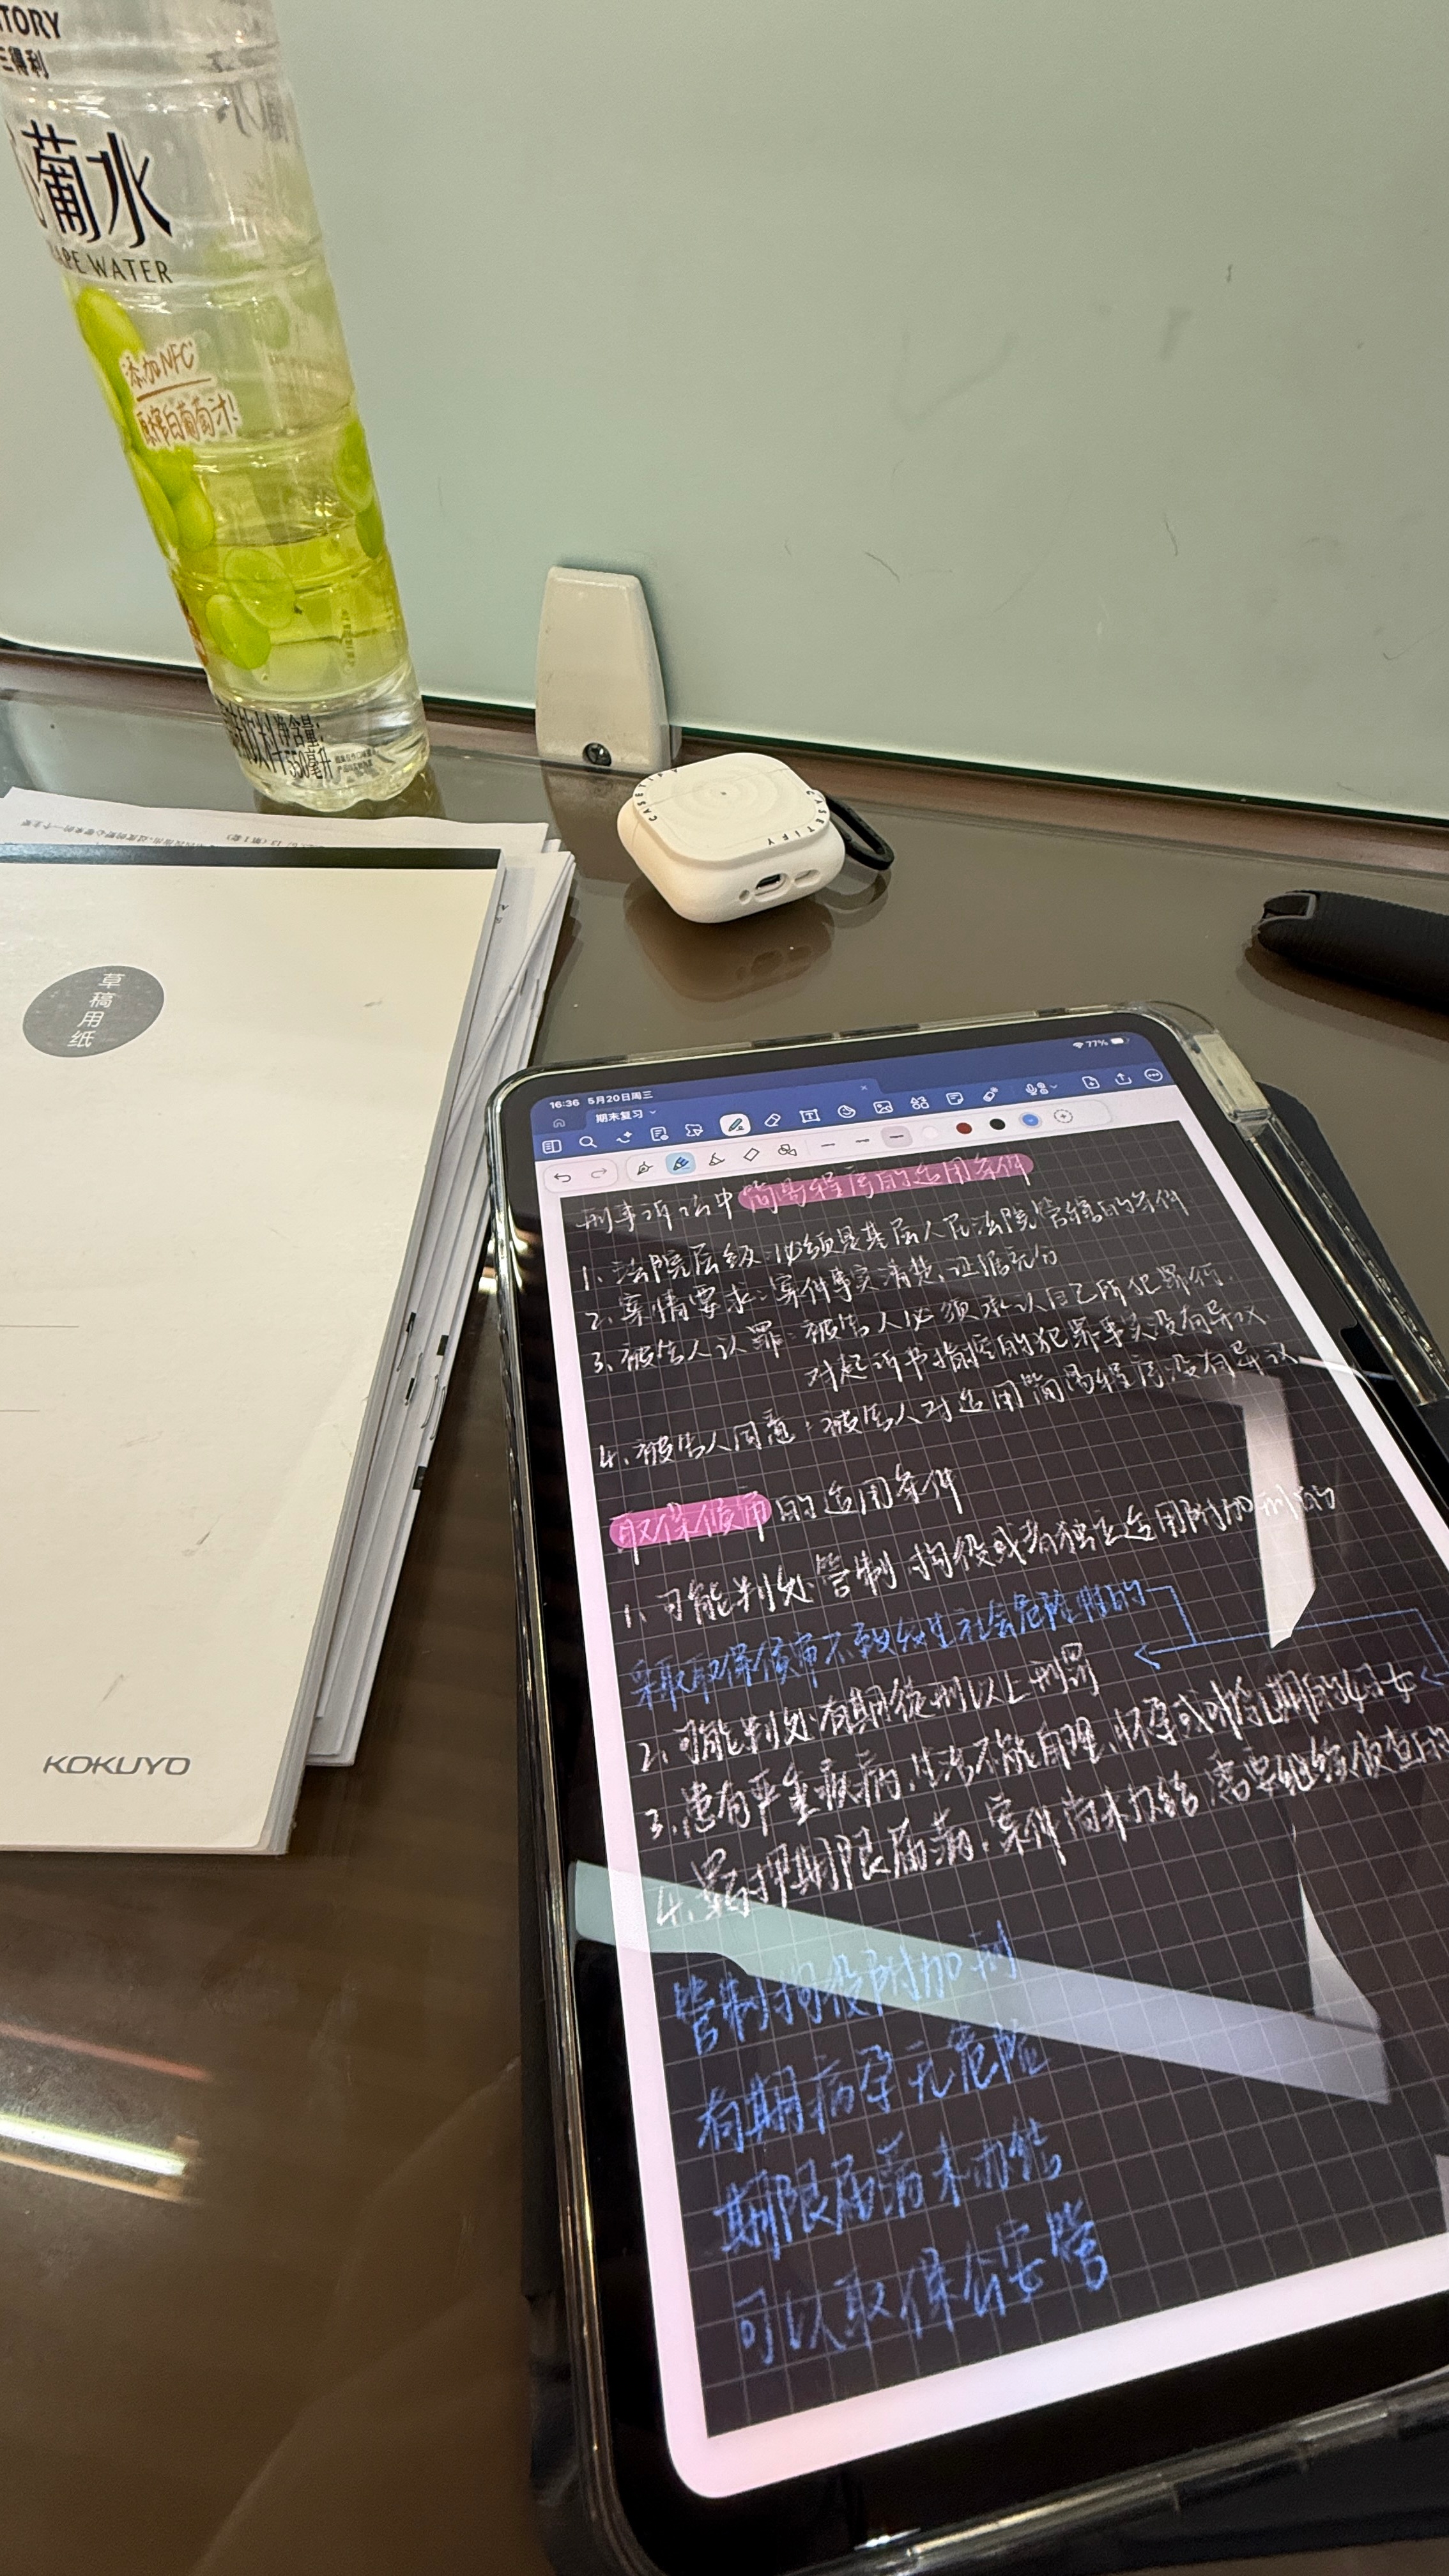 TORY
三得利
葡水
APE WATER
添加NFC
原榨白葡萄汁!
净含量:
550毫升
CASETIFY
CASETIFY
草稿用纸
KOKUYO
16:36 5月20日周三
77%
期末复习
刑事诉讼中简易程序的适用条件
1、法院层级:必须是基层人民法院管辖的条件
2、案情要求:案件事实清楚、证据充分
3、被告人认罪:被告人必须承认自己所犯罪行.
对起诉书指控的犯罪事实没有异议.
4、被告人同意:被告人对适用简易程序没有异议
取保候审的适用条件
1、可能判处管制 拘役或者独立适用附加刑的
采取取保候审不致发生社会危险性的
2、可能判处有期徒刑以上刑罚
3、患有严重疾病、生活不能自理、怀孕或哺乳期的妇女
4、羁押期限届满、案件尚未办结 需要继续侦查的
管制拘役附加刑
有期病孕无危险
期限届满未办结
可以取保公安管